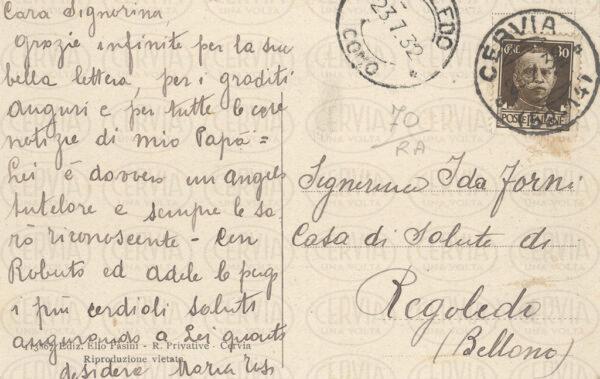 Cara Signorina,
Grazie infinite per la sua
bella lettera, per i graditi
auguri e per tutte le care
notizie di mio Papà =
Lei è davvero un angelo
tutelare e sempre le sa
rò riconoscente - Con
Roberto ed Adele le porgo
i più cordiali saluti
augurando a Lei quanto
desidera Maria
11386/ Ediz. Elio Pasini - R. Privative - Cervia
Riproduzione vietata
23.1.32
COMO
CERVIA
30
POSTE ITALIANE
70
RA
Signorina Ida Forni
Casa di Salute di
Regoledo
(Belluno)
CERVIA
UNA VOLTA